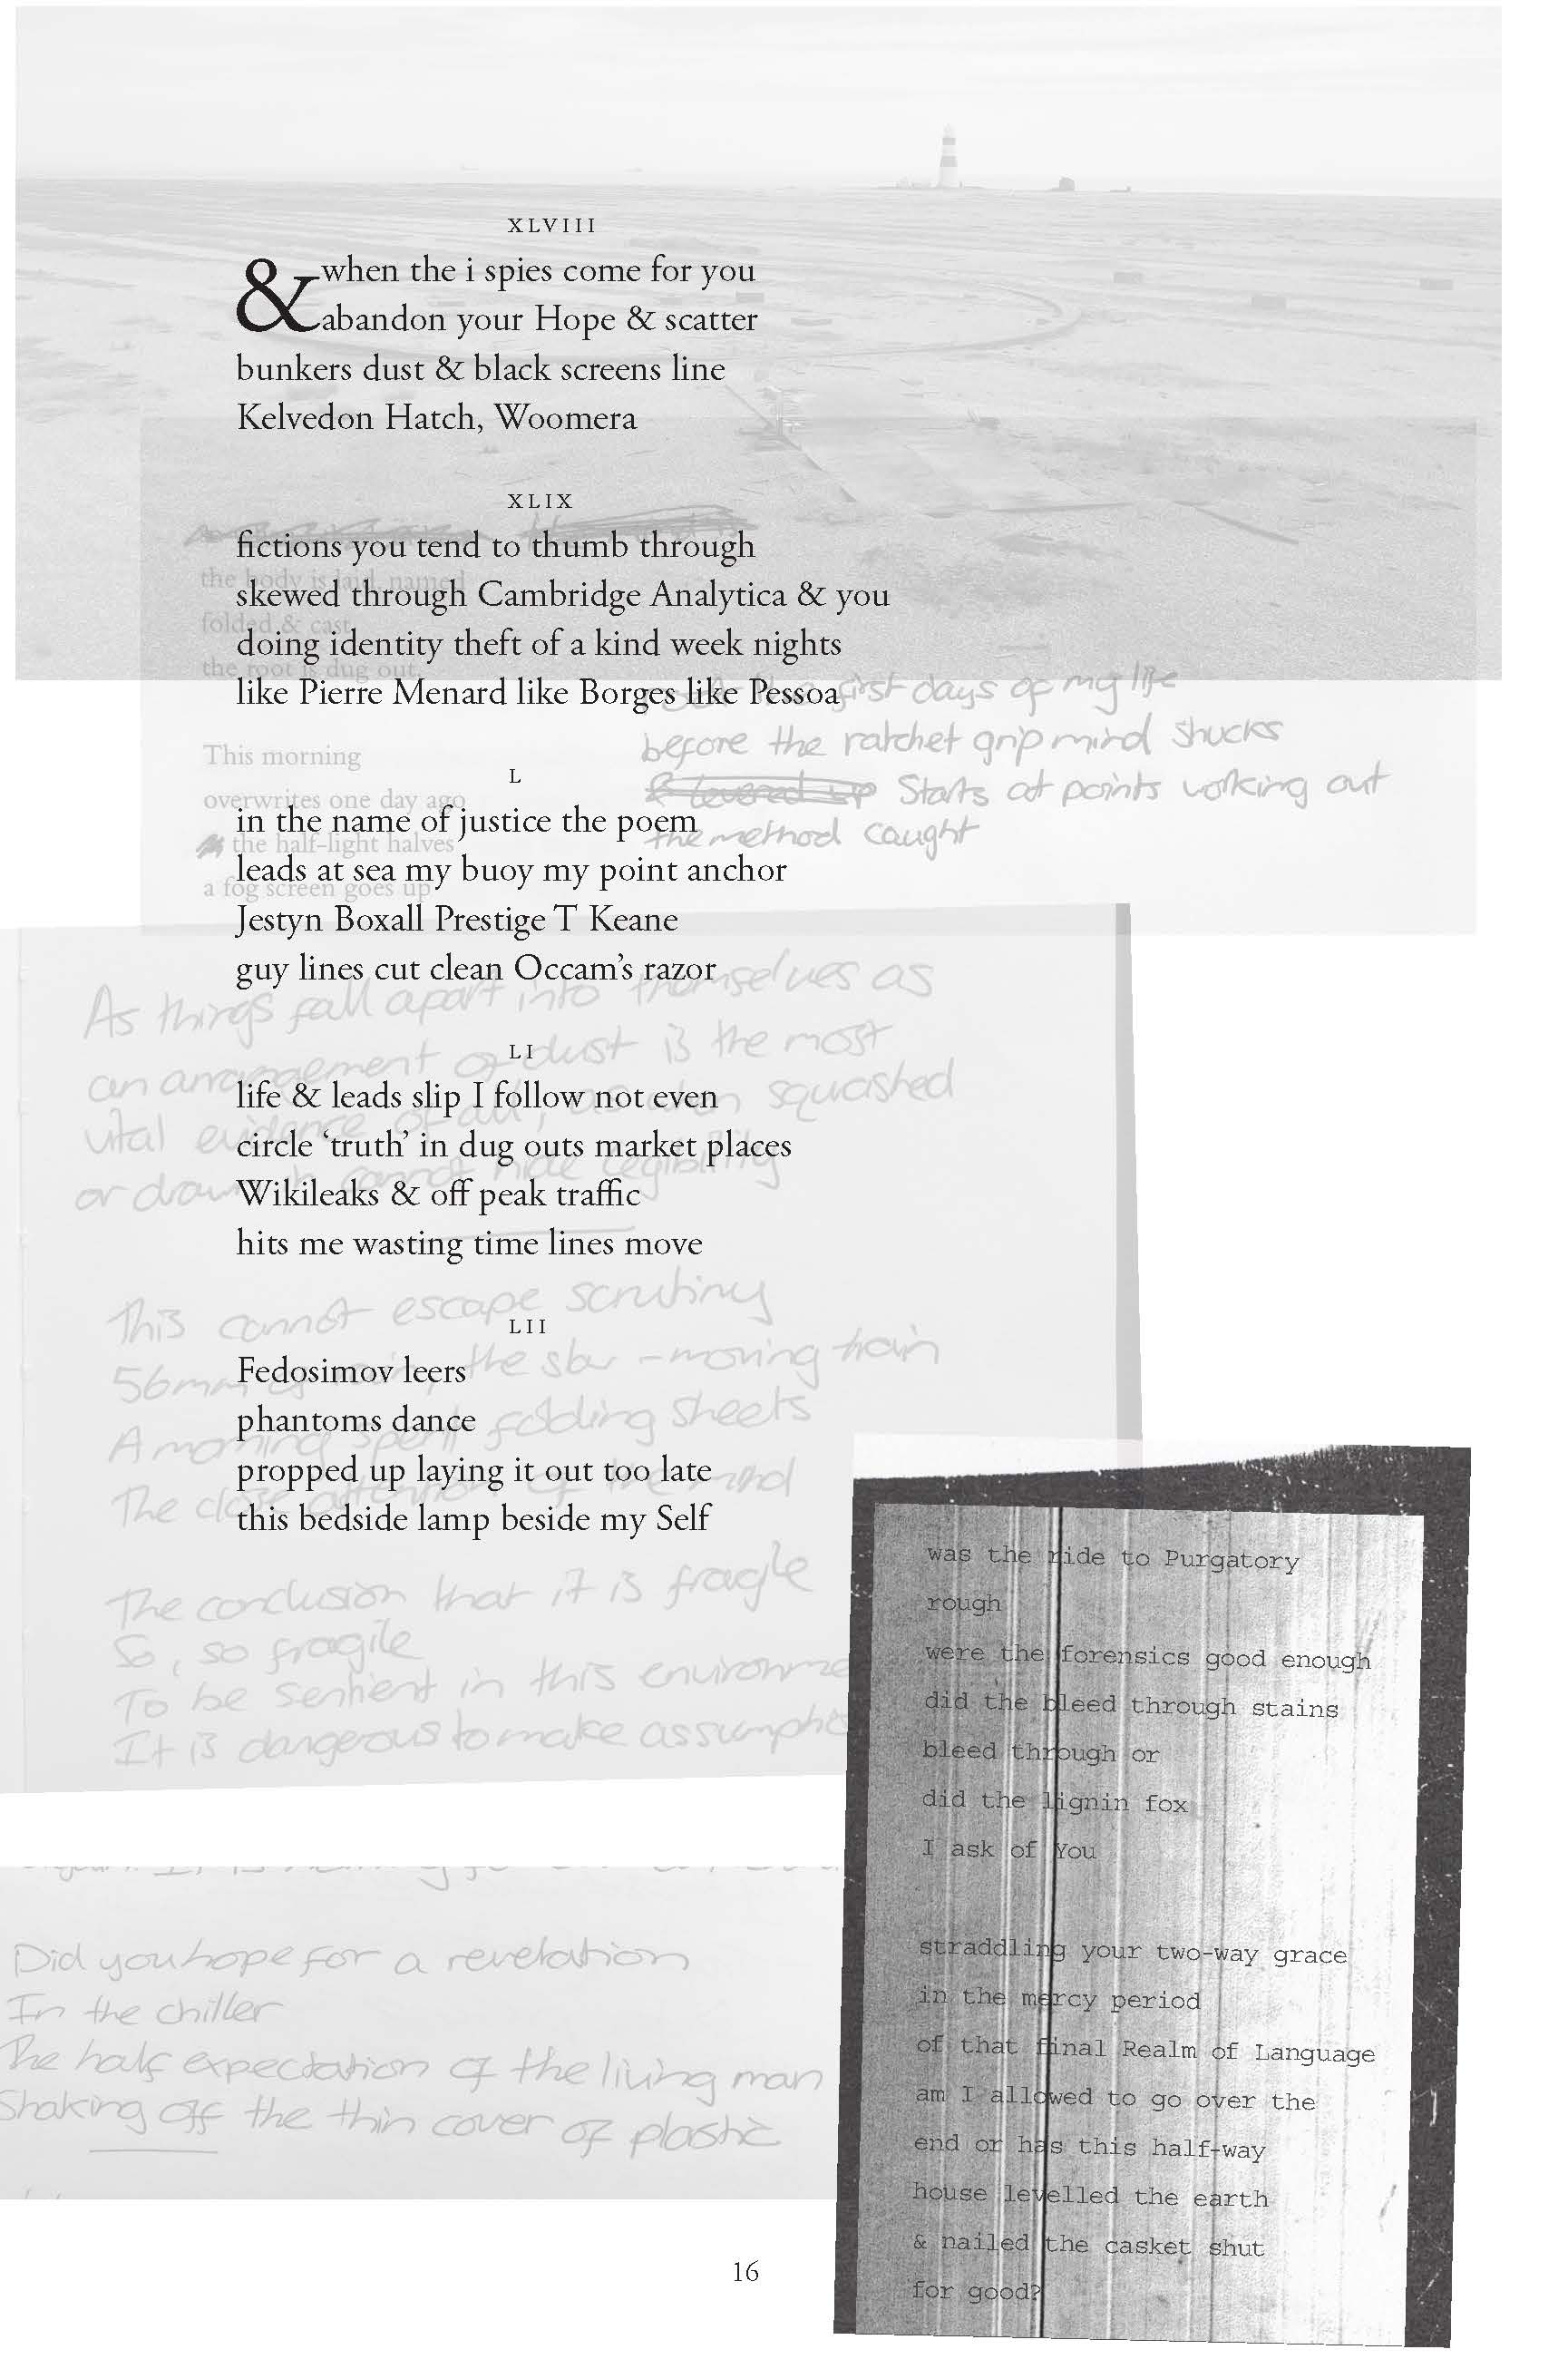 XLVIII
& when the i spies come for you
abandon your Hope & scatter
bunkers dust & black screens line
Kelvedon Hatch, Woomera
XLIX
fictions you tend to thumb through
skewed through Cambridge Analytica & you
doing identity theft of a kind week nights
like Pierre Menard like Borges like Pessoa
L
in the name of justice the poem
leads at sea my buoy my point anchor
Jestyn Boxall Prestige T Keane
guy lines cut clean Occam’s razor
LI
life & leads slip I follow not even
circle ‘truth’ in dug outs market places
Wikileaks & off peak traffic
hits me wasting time lines move
LII
Fedosimov leers
phantoms dance
propped up laying it out too late
this bedside lamp beside my Self
the body is laid, named
folded & cast
the root is dug out
This morning
overwrites one day ago
the half-light halves
a fog screen goes up
the first days of my life
before the ratchet grip mind shucks
& levered up Starts at points working out
the method caught
As things fall apart into themselves as
an arrangement of dust is the most
vital evidence of all, as when squashed
or drawn cannot hide legibility
This cannot escape scrutiny
56mm the slow-moving train
A morning spent folding sheets
The close attention of the mind
The conclusion that it is fragile
So, so fragile
To be sentient in this
It is dangerous to make
Did you hope for a revelation
In the chiller
The half expectation of the living man
Shaking off the thin cover of plastic
was the ride to Purgatory
rough
were the forensics good enough
did the bleed through stains
bleed through or
did the lignin fox
I ask of You
straddling your two-way grace
in the mercy period
of that final Realm of Language
am I allowed to go over the
end or has this half-way
house levelled the earth
& nailed the casket shut
for good?
16